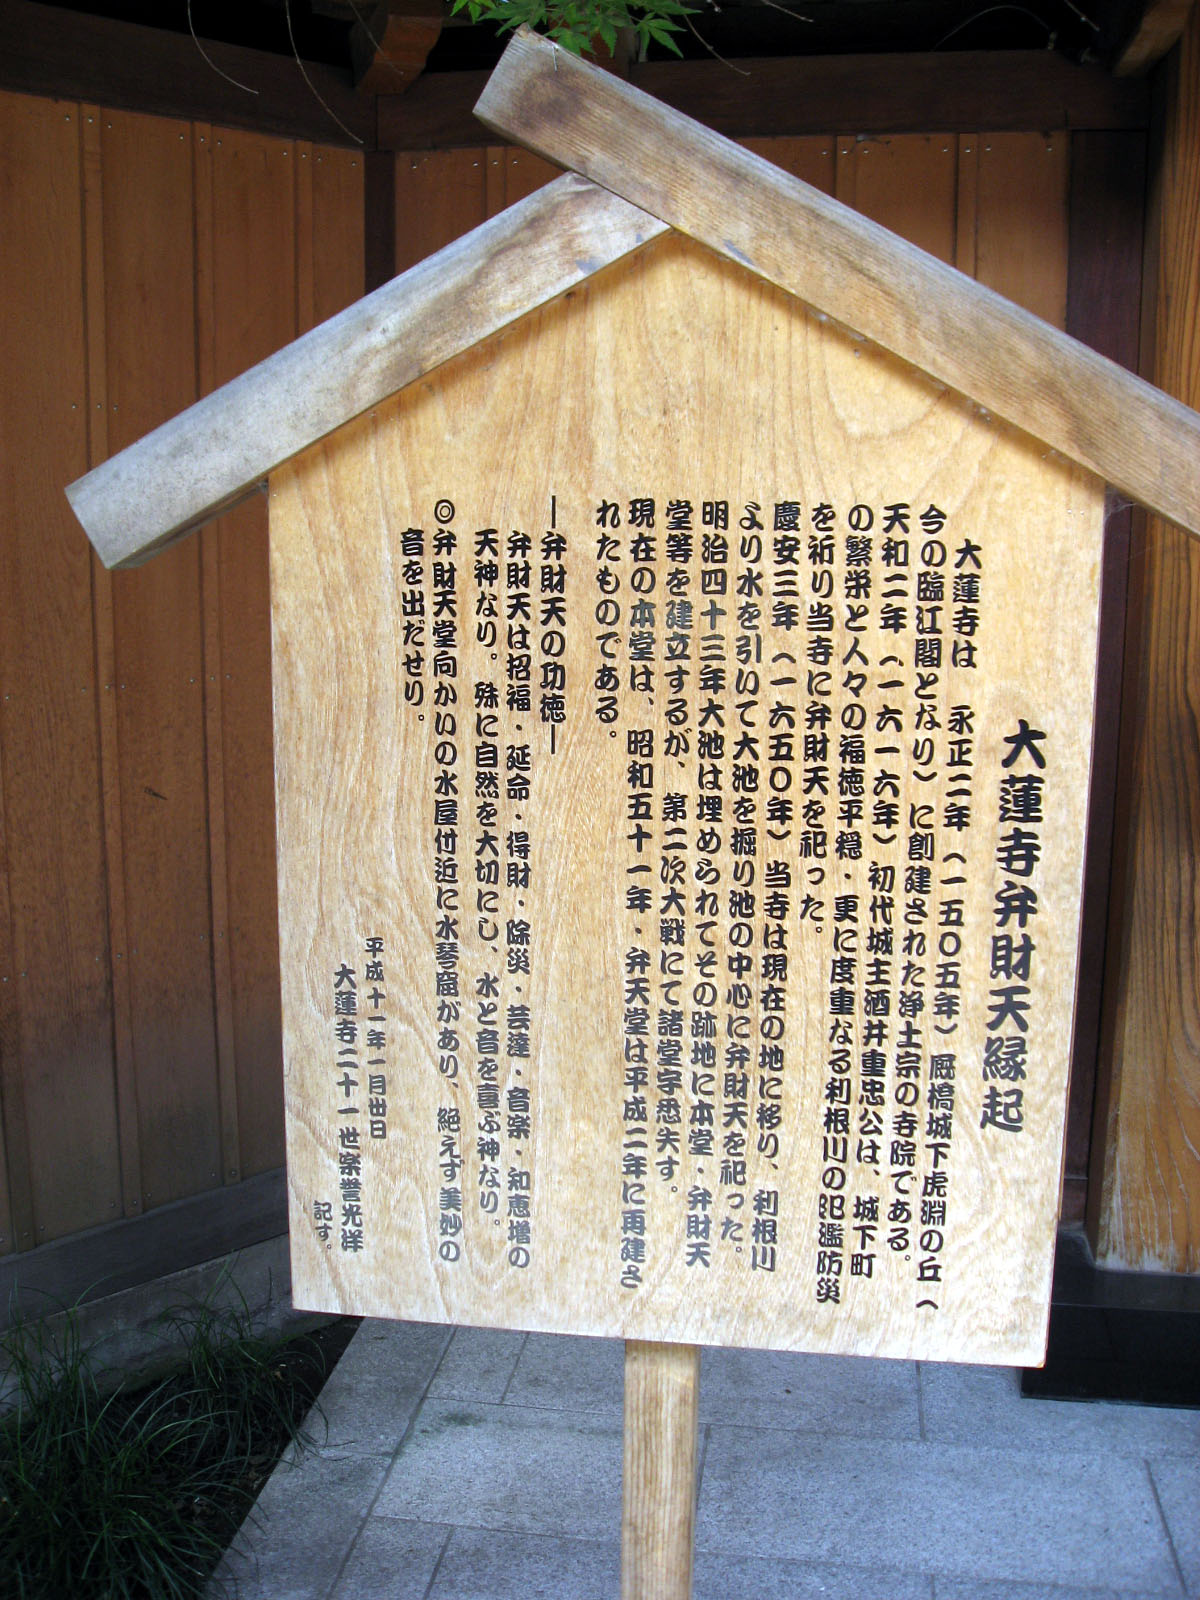 大蓮寺弁財天縁起
大蓮寺は　永正二年（一五〇五年）厩橋城下虎淵の丘（
今の臨江閣となり）に創建された浄土宗の寺院である。
天和二年（一六一六年）初代城主酒井重忠公は、城下町
の繁栄と人々の福徳平穏・更に度重なる利根川の氾濫防災
を祈り当寺に弁財天を祀った。
慶安三年（一六五〇年）当寺は現在の地に移り、利根川
より水を引いて大池を掘り池の中心に弁財天を祀った。
明治四十三年大池は埋められてその跡地に本堂・弁財天
堂等を建立するが、第二次大戦にて諸堂宇悉失す。
現在の本堂は、昭和五十一年・弁天堂は平成二年に再建さ
れたものである。
―弁財天の功徳―
弁財天は招福・延命・得財・除災・芸達・音楽・和恵増の
天神なり。殊に自然を大切にし、水と音を喜ぶ神なり。
◎弁財天堂向かいの水屋付近に水琴窟があり、絶えず美妙の
音を出だせり。
平成十一年一月廿日
大蓮寺二十一世楽誉光洋
記す。